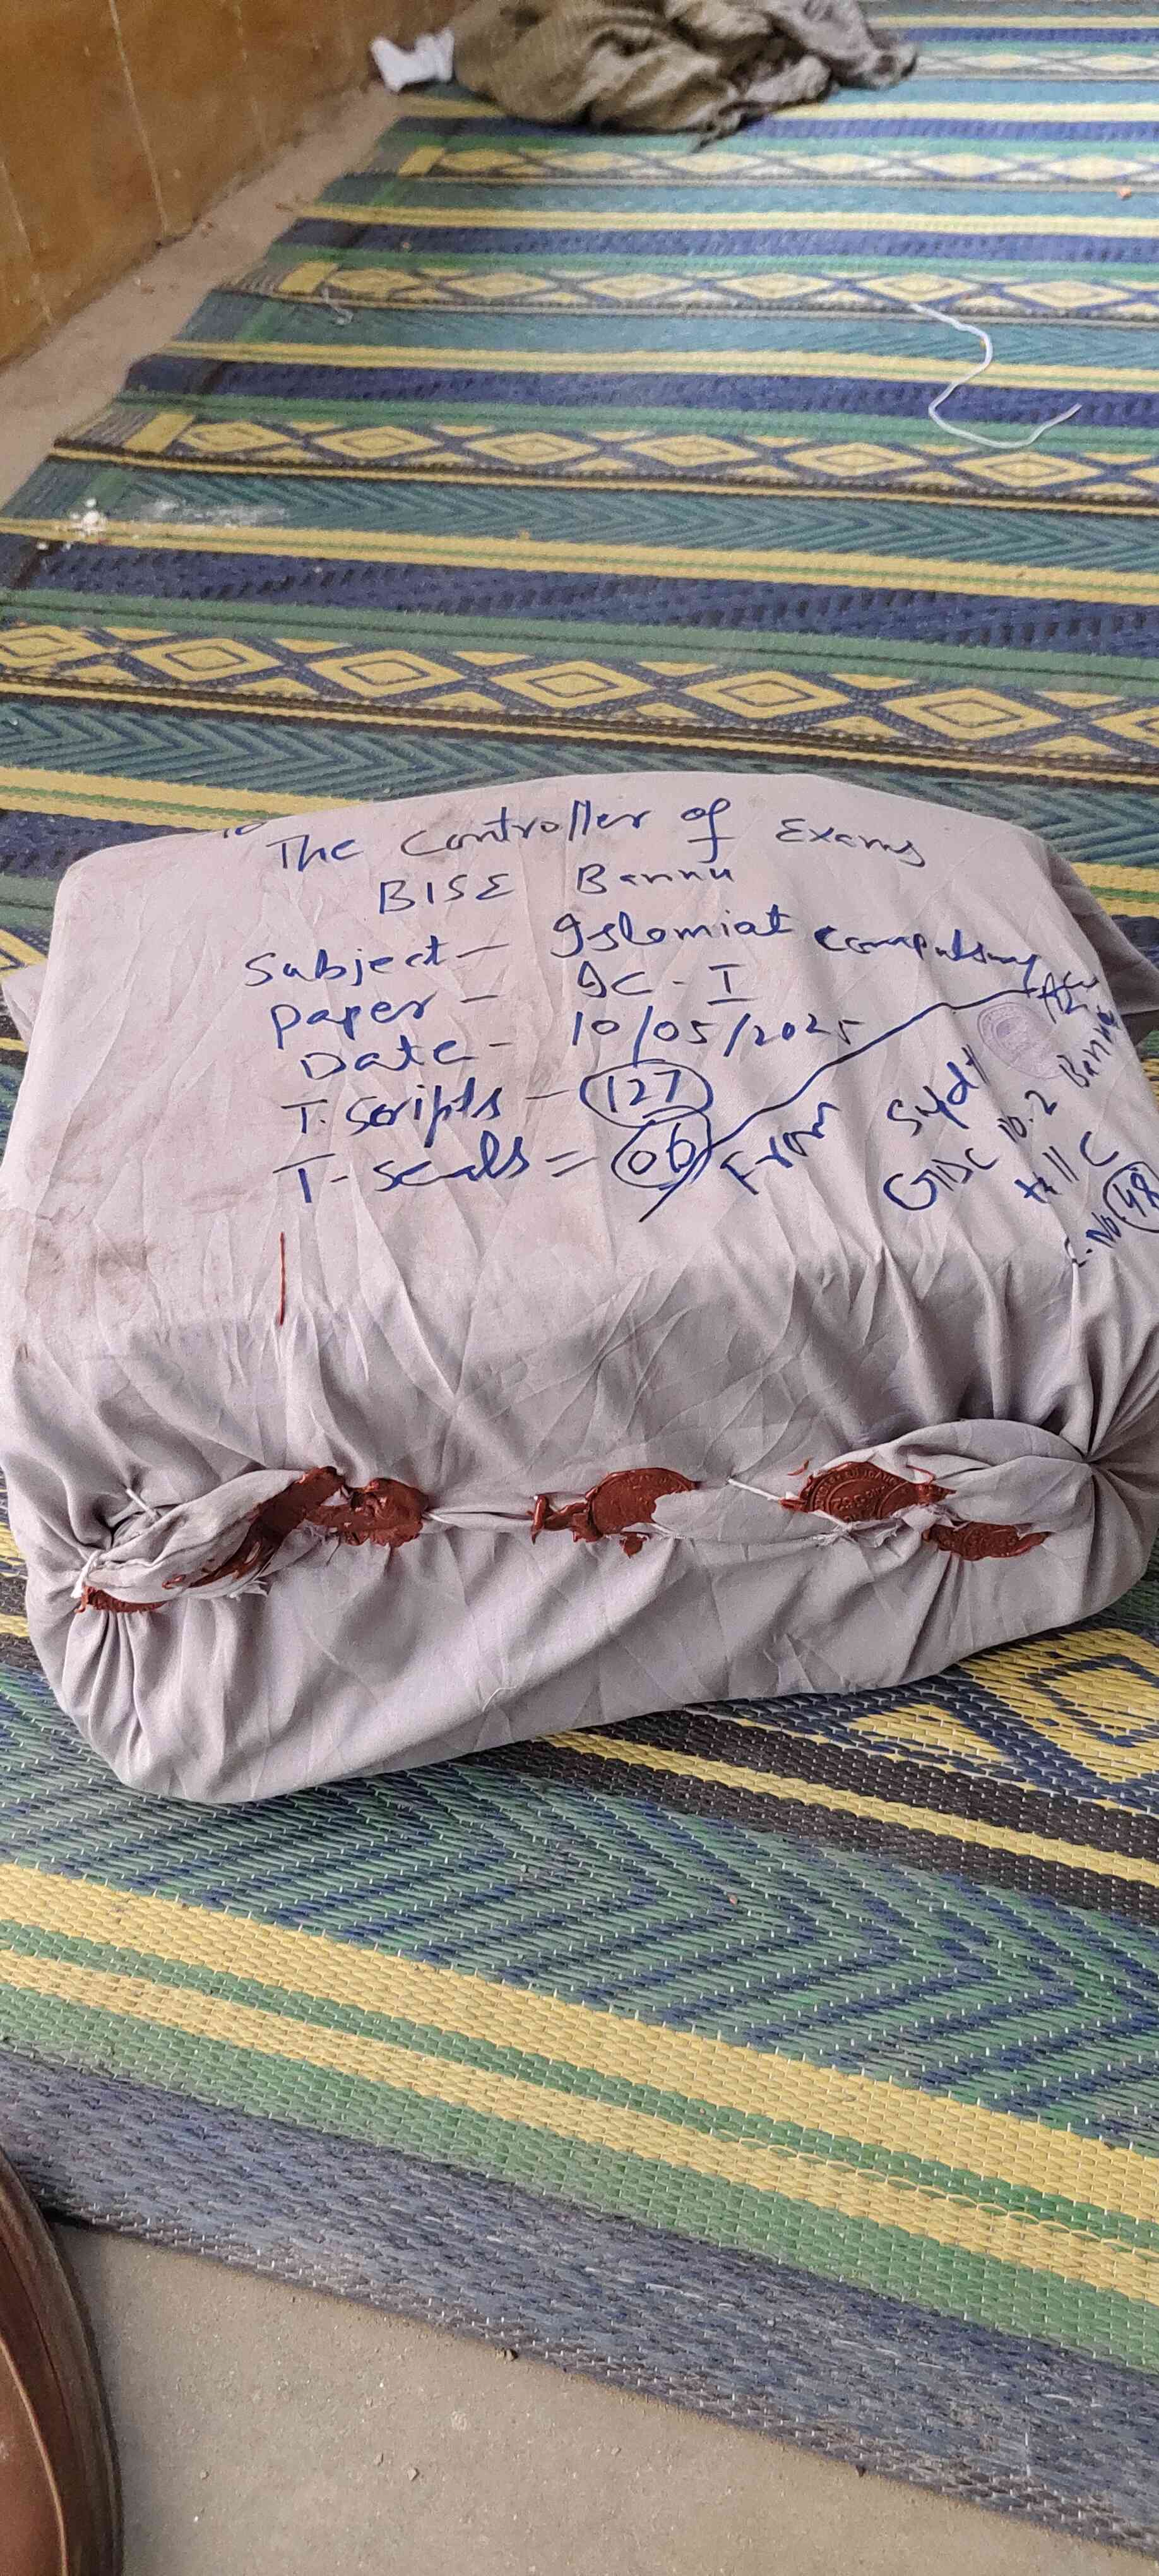 To
The Controller of Exams
BISE Bannu
Subject - Islamiat Compulsory
Paper - IC - I
Date - 10/05/2025
T. Scripts - 127
T - Seals = 06
From
Supdt
GDC No. 2 Bannu
Hall C
C. No 48